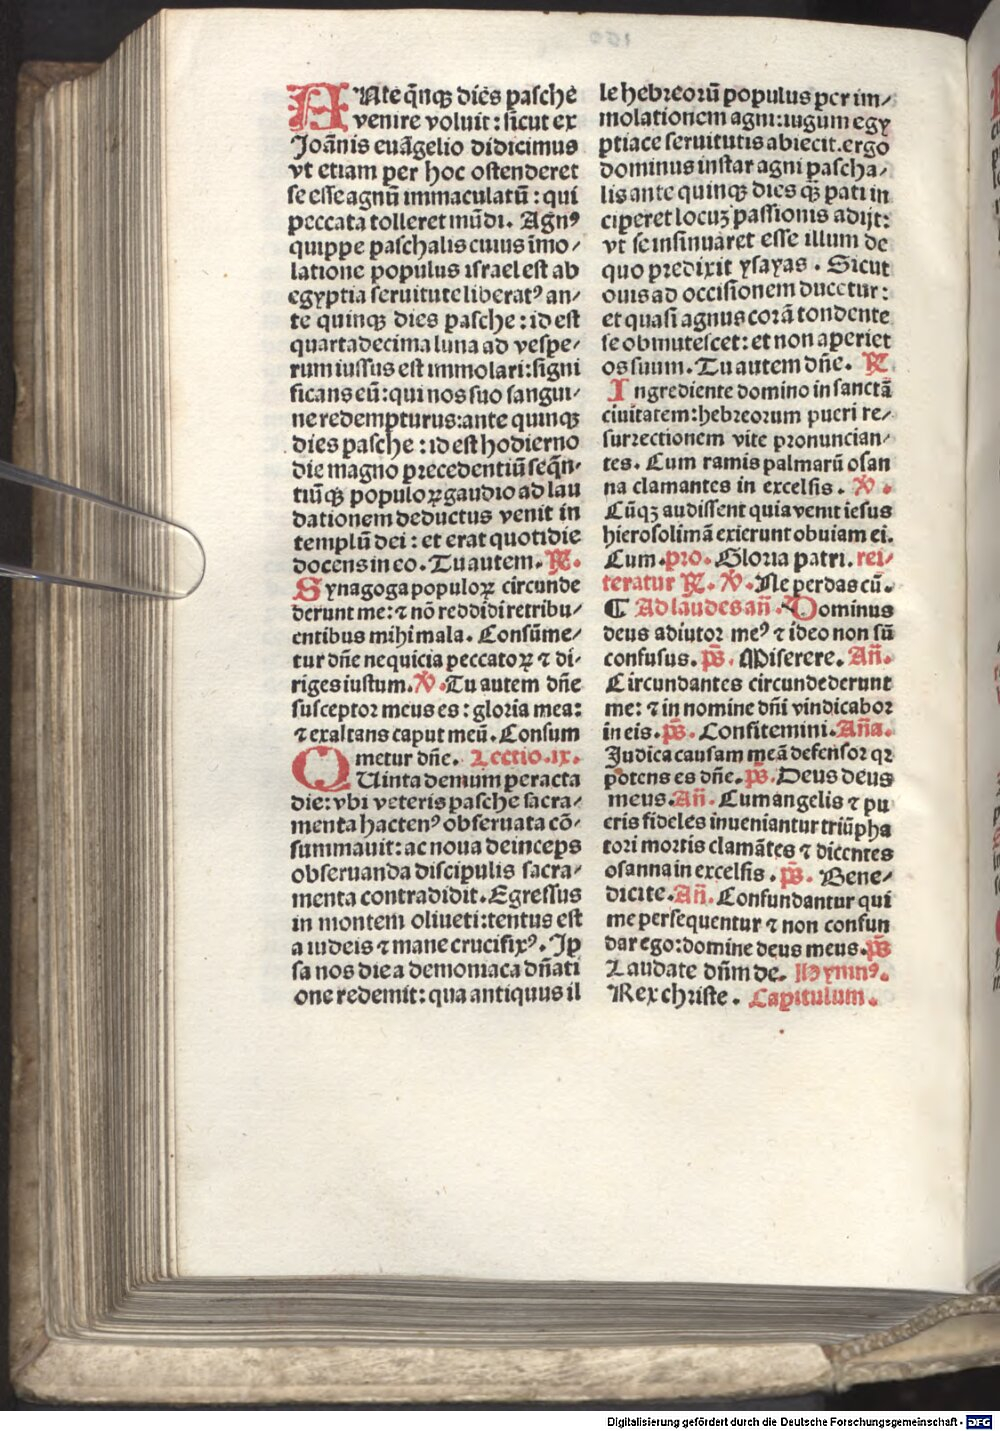 ANte q̄nqꝫ dies pasche
venire voluit : sicut ex
Joānis euāgelio didicimus
vt etiam per hoc ostenderet
se esse agnū immaculatū : qui
peccata tolleret mūdi. Agnꝰ
quippe paschalis cuius īmo⸗
latione populus israel est ab
egyptia seruitute liberatꝰ an⸗
te quinqꝫ dies pasche : id est
quartadecima luna ad vespe⸗
rum iussus est immolari : signi
ficans eū : qui nos suo sangui⸗
ne redempturus : ante quinqꝫ
dies pasche : id est hodierno
die magno precedentiū seq̄n⸗
tiūqꝫ populoꝝ gaudio ad lau
dationem deductus venit in
templū dei : et erat quotidie
docens in eo. Tu autem. ℟.
Synagoga populoꝝ circunde
derunt me : ⁊ nō reddidi retribu⸗
entibus mihi mala. Consūme⸗
tur dn̄e nequicia peccatoꝝ ⁊ di⸗
riges iustum. ℣. Tu autem dn̄e
susceptor meus es : gloria mea :
⁊ exaltans caput meū. Consum
metur dn̄e. Lectio .ix.
QUinta demum peracta
die : vbi veteris pasche sacra⸗
menta hactenꝰ obseruata cō⸗
summauit : ac noua deinceps
obseruanda discipulis sacra⸗
menta contradidit. Egressus
in montem oliueti : tentus est
a iudeis ⁊ mane crucifixꝰ. Ip
sa nos die a demoniaca dn̄ati
one redemit : qua antiquus il
le hebreorū populus per im⸗
molationem agni : iugum egy
ptiace seruitutis abiecit. ergo
dominus instar agni pascha⸗
lis ante quinqꝫ dies qꝫ̄ pati in
ciperet locuꝫ passionis adijt :
vt se insinuaret esse illum de
quo predixit ysayas . Sicut
ouis ad occisionem ducetur :
et quasi agnus corā tondente
se obmutescet : et non aperiet
os suum. Tu autem dn̄e. ℟
Ingrediente domino in sanctā
ciuitatem : hebreorum pueri re⸗
surrectionem vite pronuncian⸗
tes. Cum ramis palmarū osan
na clamantes in excelsis. ℣.
Cūqꝫ audissent quia venit iesus
hierosolimā exierunt obuiam ei.
Cum. pro. Gloria patri. rei⸗
teratur ℟. ℣. Ne perdas cū.
¶ Ad laudes an̄. Dominus
deus adiutor meꝰ ⁊ ideo non sū
confusus. ps̄. Miserere. An̄.
Circundantes circundederunt
me : ⁊ in nomine dn̄i vindicabor
in eis. ps̄. Confitemini. An̄a.
Judica causam meā defensor qꝛ
potens es dn̄e. ps̄. Deus deus
meus. An̄. Cum angelis ⁊ pu
eris fideles inueniantur triūpha
tori mortis clamātes ⁊ dicentes
osanna in excelsis. ps̄. Bene⸗
dicite. An̄. Confundantur qui
me persequentur ⁊ non confun
dar ego : domine deus meus. ps̄
Laudate dn̄m de. Hymnꝰ.
Rex christe. Capitulum.
Digitalisierung gefördert durch die Deutsche Forschungsgemeinschaft - DFG